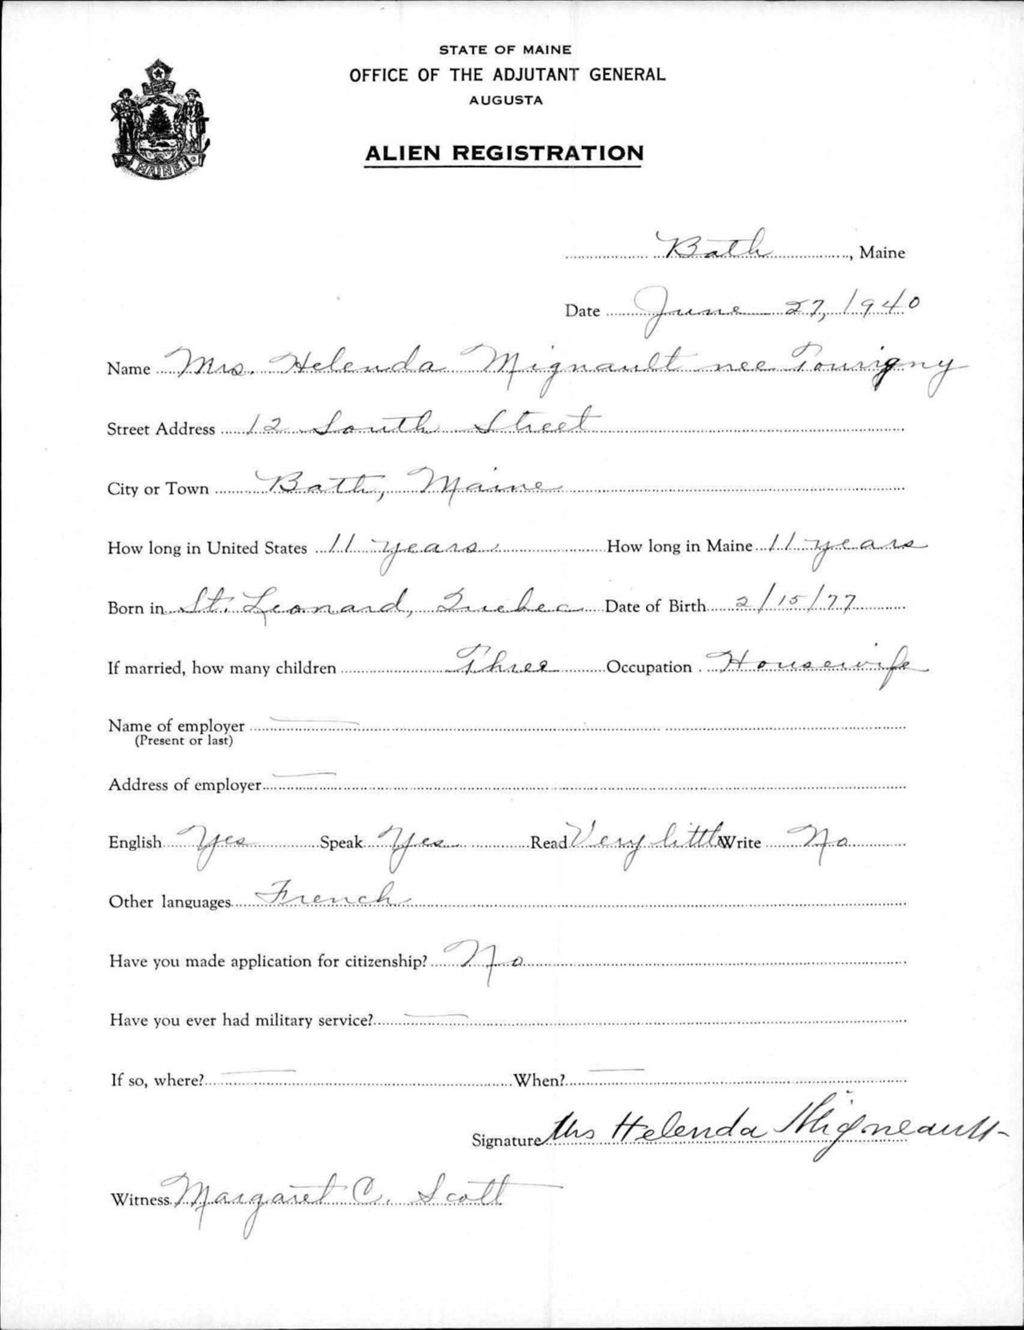 STATE OF MAINE
OFFICE OF THE ADJUTANT GENERAL
AUGUSTA
ALIEN REGISTRATION
MAINE
Bath, Maine
Date June 27, 1940
Name Mrs. Helenda Mignault nee Tourigny
Street Address 12 South Street
City or Town Bath, Maine
How long in United States 11 years. How long in Maine 11 years
Born in St. Leonard, Quebec Date of Birth 2/15/77
If married, how many children Three Occupation Housewife
Name of employer —
(Present or last)
Address of employer —
English Yes Speak Yes Read Very little Write No
Other languages French
Have you made application for citizenship? No
Have you ever had military service? —
If so, where? — When? —
Signature Mrs Helenda Migneault
Witness Margaret C. Scott